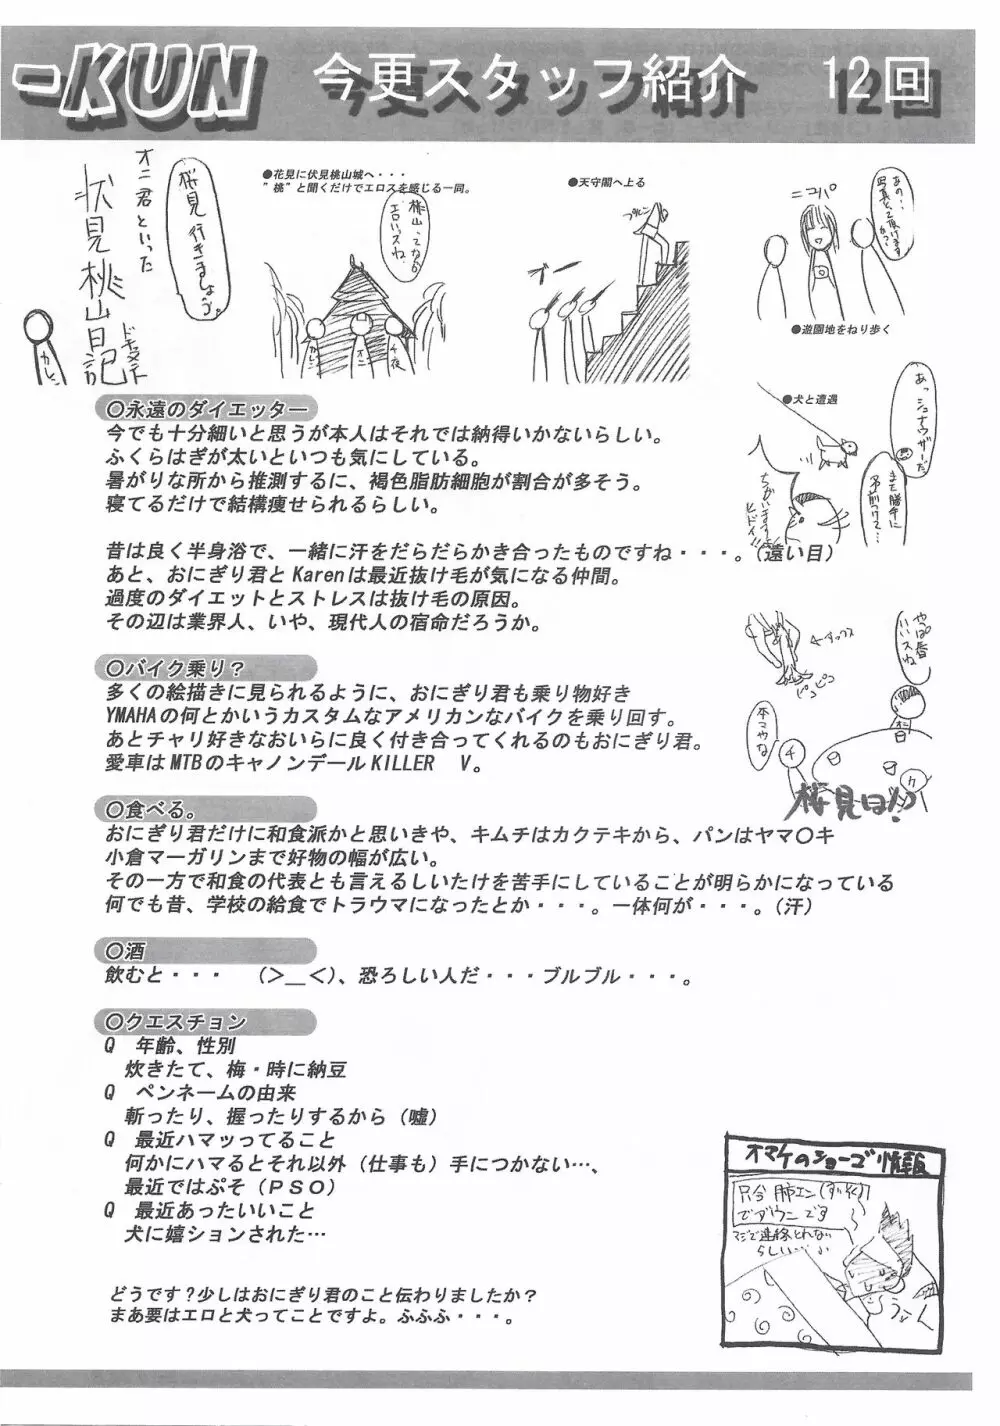 -KUN 今更スタッフ紹介 12回
桜見行きましょう。
オニ君といった
伏見桃山日記
ドキュメント
カレン
●花見に伏見桃山城へ・・・
”桃”と聞くだけでエロスを感じる一同。
桃山ってなんか
エロいスね
オニ
千夜
●天守閣へ上る
ニコパ
あの・・
写真とって頂けます
●遊園地をねり歩く
●犬と遭遇
あっシュナウザーだ
また勝手に
名前つけて…
ちがいます
ヒドイ!!
〇永遠のダイエッター
今でも十分細いと思うが本人はそれでは納得いかないらしい。
ふくらはぎが太いといつも気にしている。
暑がりな所から推測するに、褐色脂肪細胞が割合が多そう。
寝てるだけで結構痩せられるらしい。
昔は良く半身浴で、一緒に汗をだらだらかき合ったものですね・・・。（遠い目）
あと、おにぎり君とKarenは最近抜け毛が気になる仲間。
過度のダイエットとストレスは抜け毛の原因。
その辺は業界人、いや、現代人の宿命だろうか。
やっぱ春
いいスね
ピコピコ
本マやな
オニ
チ
カ
桜見ロ!?
〇バイク乗り？
多くの絵描きに見られるように、おにぎり君も乗り物好き
YMAHAの何とかいうカスタムなアメリカンなバイクを乗り回す。
あとチャリ好きなおいらに良く付き合ってくれるのもおにぎり君。
愛車はMTBのキャノンデールKILLER V。
〇食べる。
おにぎり君だけに和食派かと思いきや、キムチはカクテキから、パンはヤマ〇キ
小倉マーガリンまで好物の幅が広い。
その一方で和食の代表とも言えるしいたけを苦手にしていることが明らかになっている
何でも昔、学校の給食でトラウマになったとか・・・。一体何が・・・。（汗）
〇酒
飲むと・・・ （＞＿＜）、恐ろしい人だ・・・ブルブル・・・。
〇クエスチョン
Q 年齢、性別
炊きたて、梅・時に納豆
Q ペンネームの由来
斬ったり、握ったりするから（嘘）
Q 最近ハマッってること
何かにハマるとそれ以外（仕事も）手につかない…、
最近ではぷそ（ＰＳＯ）
Q 最近あったいいこと
犬に嬉ションされた…
どうです？少しはおにぎり君のこと伝わりましたか？
まあ要はエロと犬ってことですよ。ふふふ・・・。
オマケのショーゴ情報
只今肺エン
でダウンです
マジで連絡とれない
らしい…